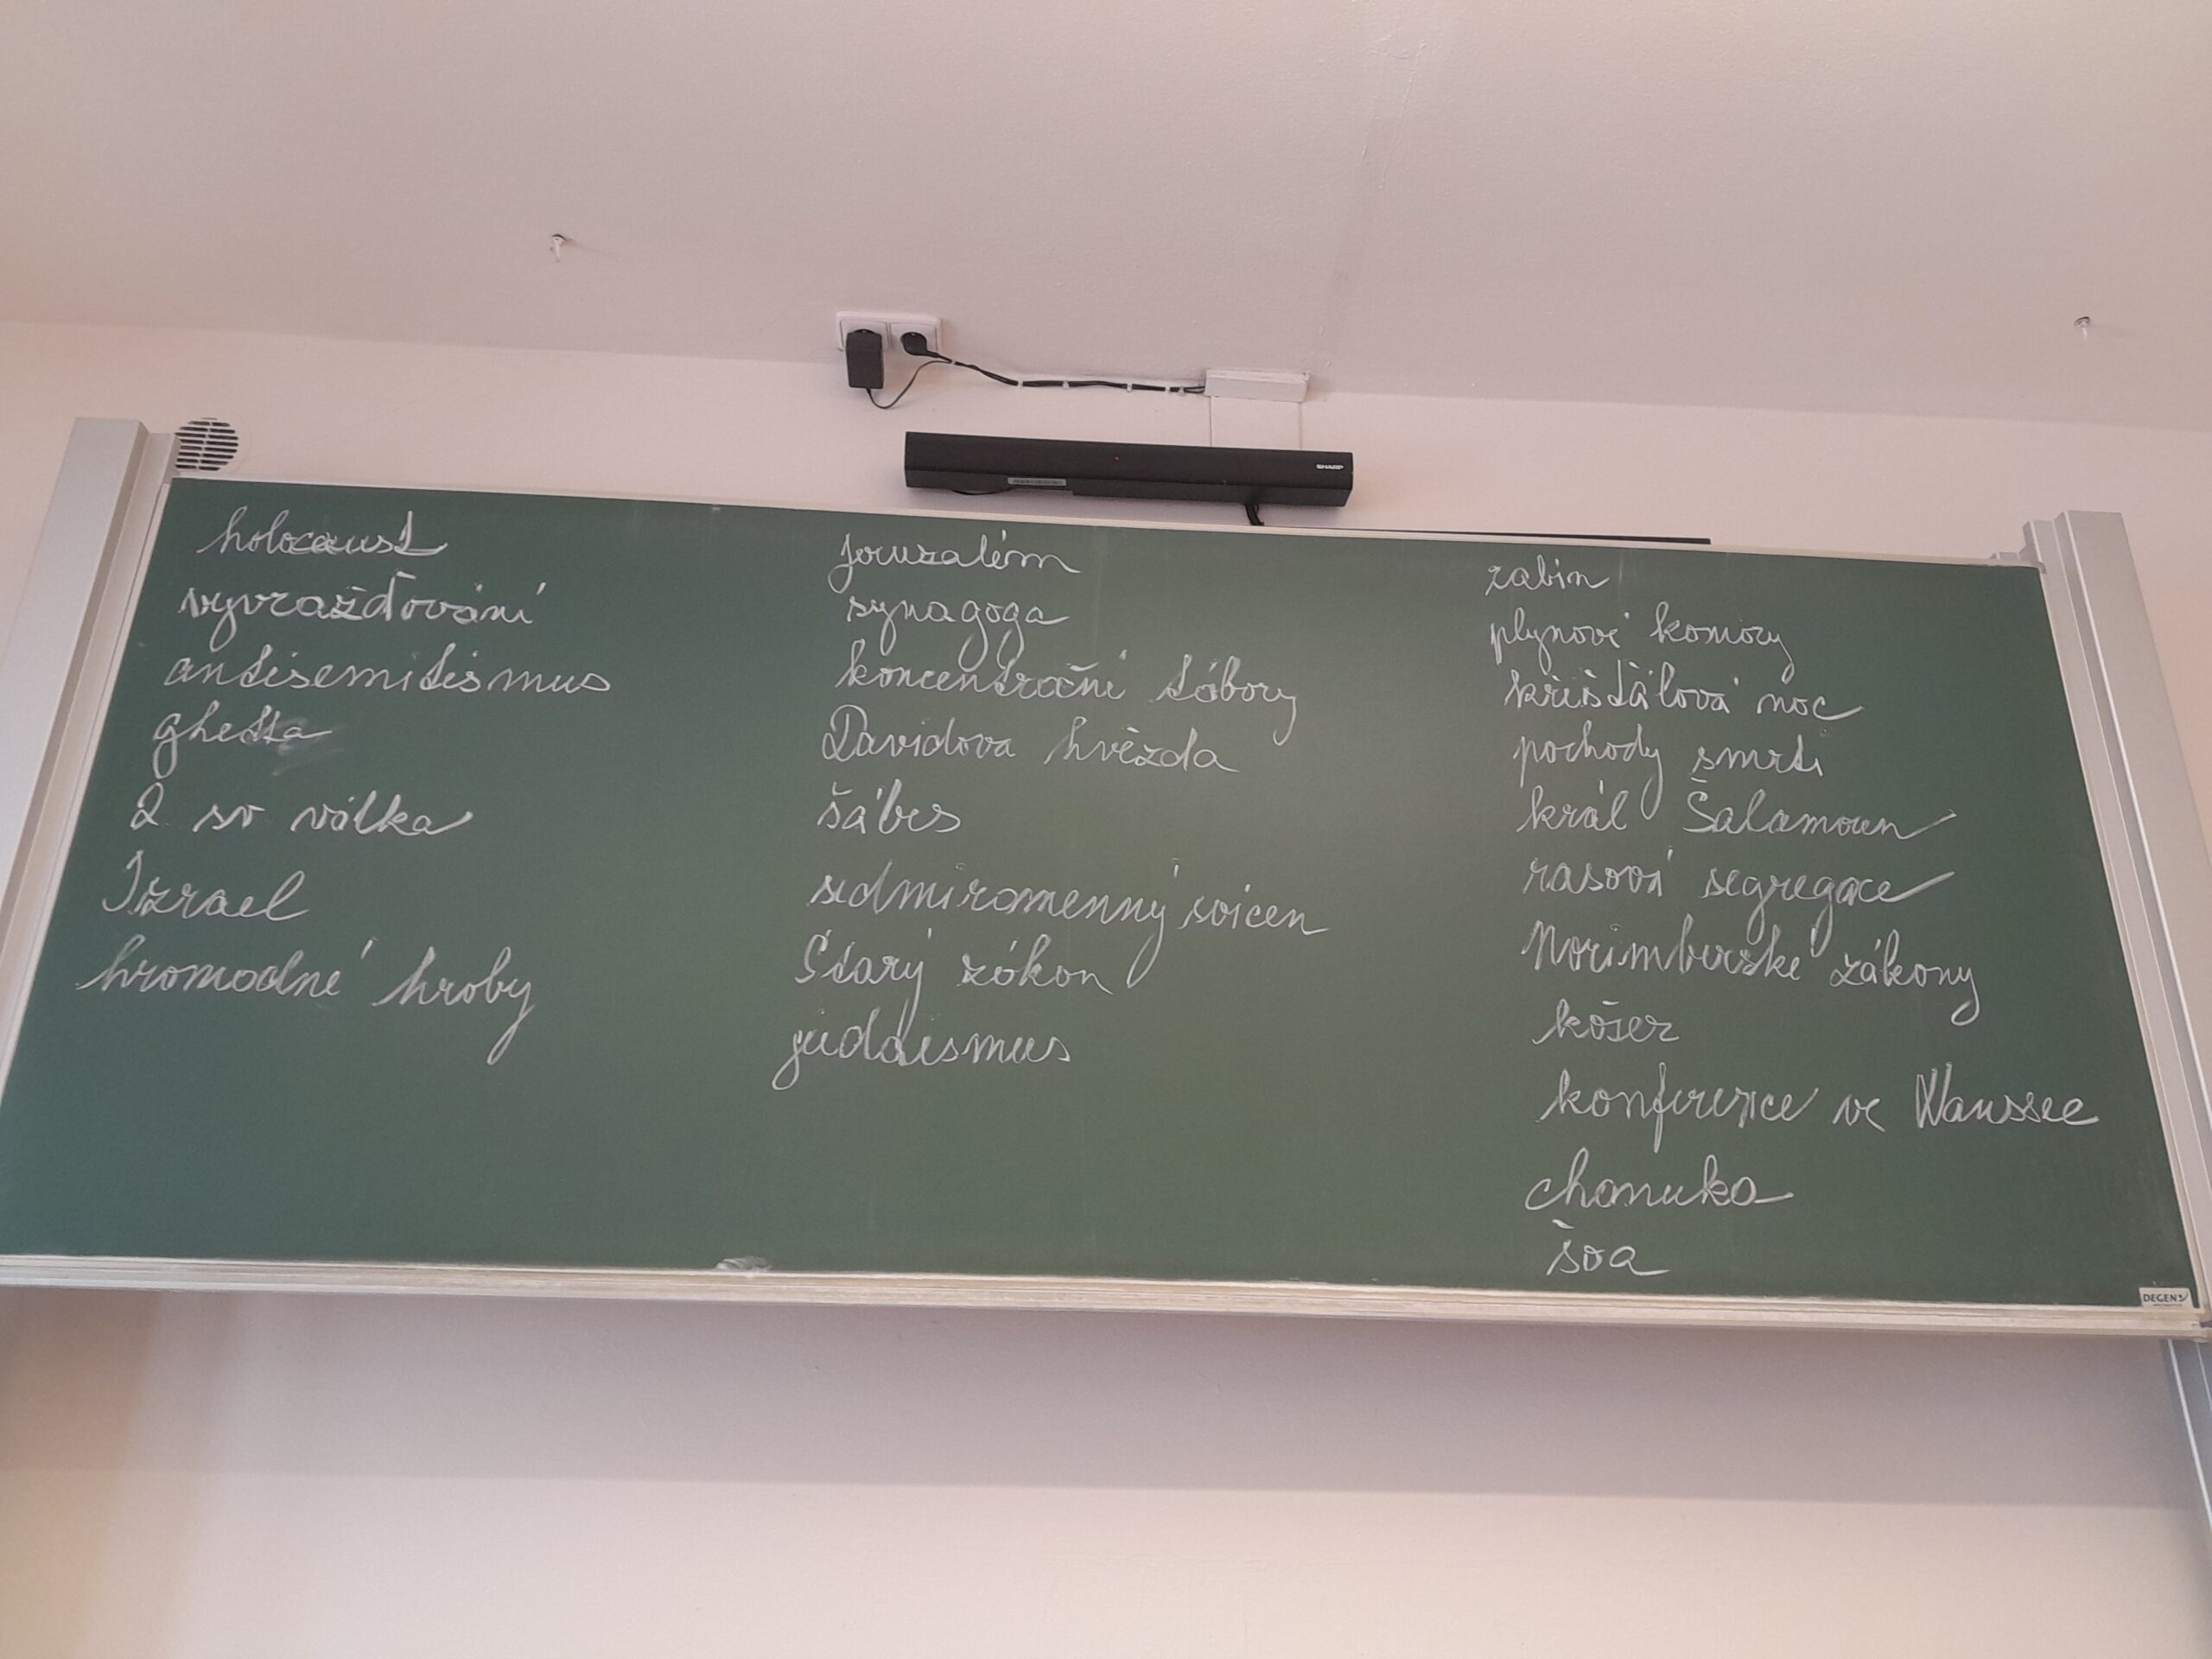 SHARP
holocaust
vyvražďování
antisemitismus
ghetta
2 sv válka
Izrael
hromadné hroby
Jeruzalém
synagoga
koncentrační tábory
Davidova hvězda
šábes
sedmiramenný svícen
Starý zákon
judaismus
rabín
plynové komory
křišťálová noc
pochody smrti
král Šalamoun
rasová segregace
Norimberské zákony
košer
konference ve Wansee
chanuka
šoa
DEGEN